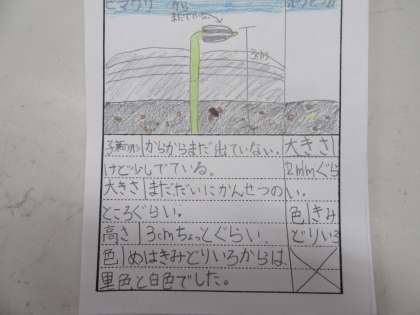 ヒマワリ
まだでていない
3cm
子葉のようす からからまだ出ていない。
けど少しでている。
大きさ まだだいにかんせつの
ところぐらい。
高さ 3cmちょっとぐらい。
色 めはきみどりいろからは
黒色と白色でした。
大きさ
2mmぐら
い。
色 きみ
どりいろ